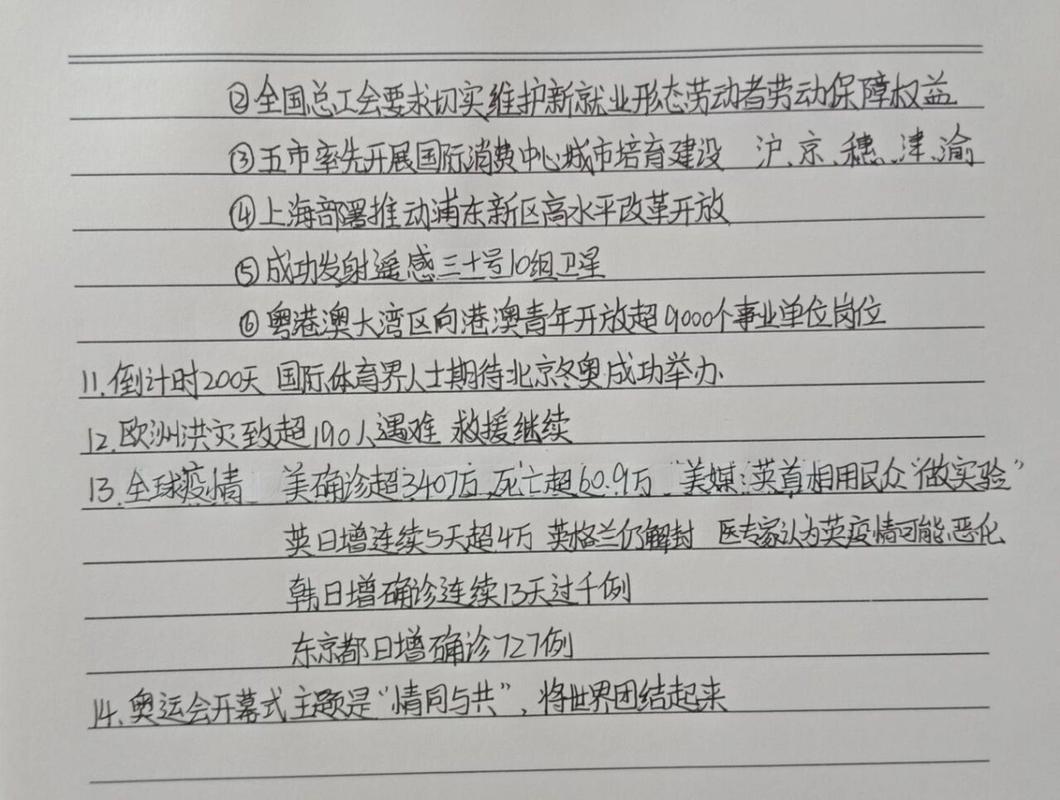 ②全国总工会要求切实维护新就业形态劳动者劳动保障权益
③五市率先开展国际消费中心城市培育建设 沪、京、穗、津、渝
④上海部署推动浦东新区高水平改革开放
⑤成功发射遥感三十号10组卫星
⑥粤港澳大湾区向港澳青年开放超9000个事业单位岗位
11.倒计时200天 国际体育界人士期待北京冬奥成功举办
12.欧洲洪灾致超190人遇难 救援继续
13.全球疫情 美确诊超3407万,死亡超60.9万 美媒:英首相用民众“做实验”
英日增连续5天超4万 英格兰仍解封 医专家认为英疫情可能恶化
韩日增确诊连续13天过千例
东京都日增确诊727例
14.奥运会开幕式主题是“情同与共”,将世界团结起来